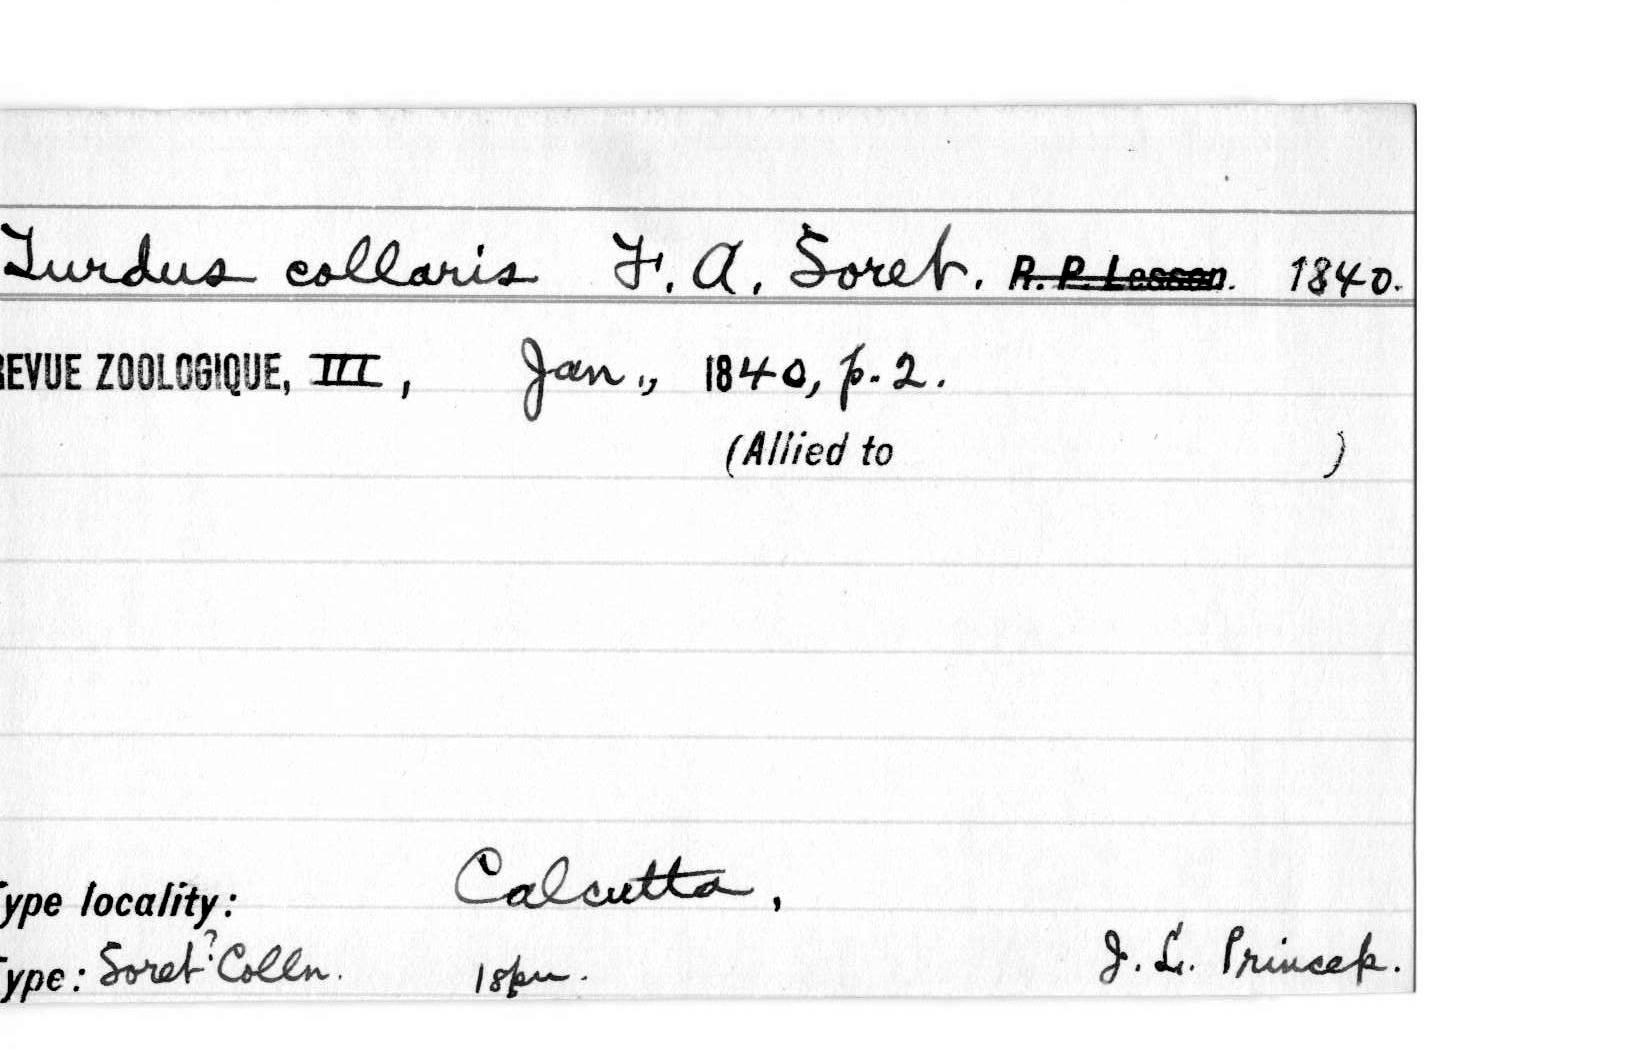 Turdus collaris F. A. Soret. R. P. Lesson. 1840.
REVUE ZOOLOGIQUE, III, Jan., 1840, p. 2.
(Allied to )
Type locality: Calcutta,
Type: Soret? Colln. 1 spm. J. L. Princep.